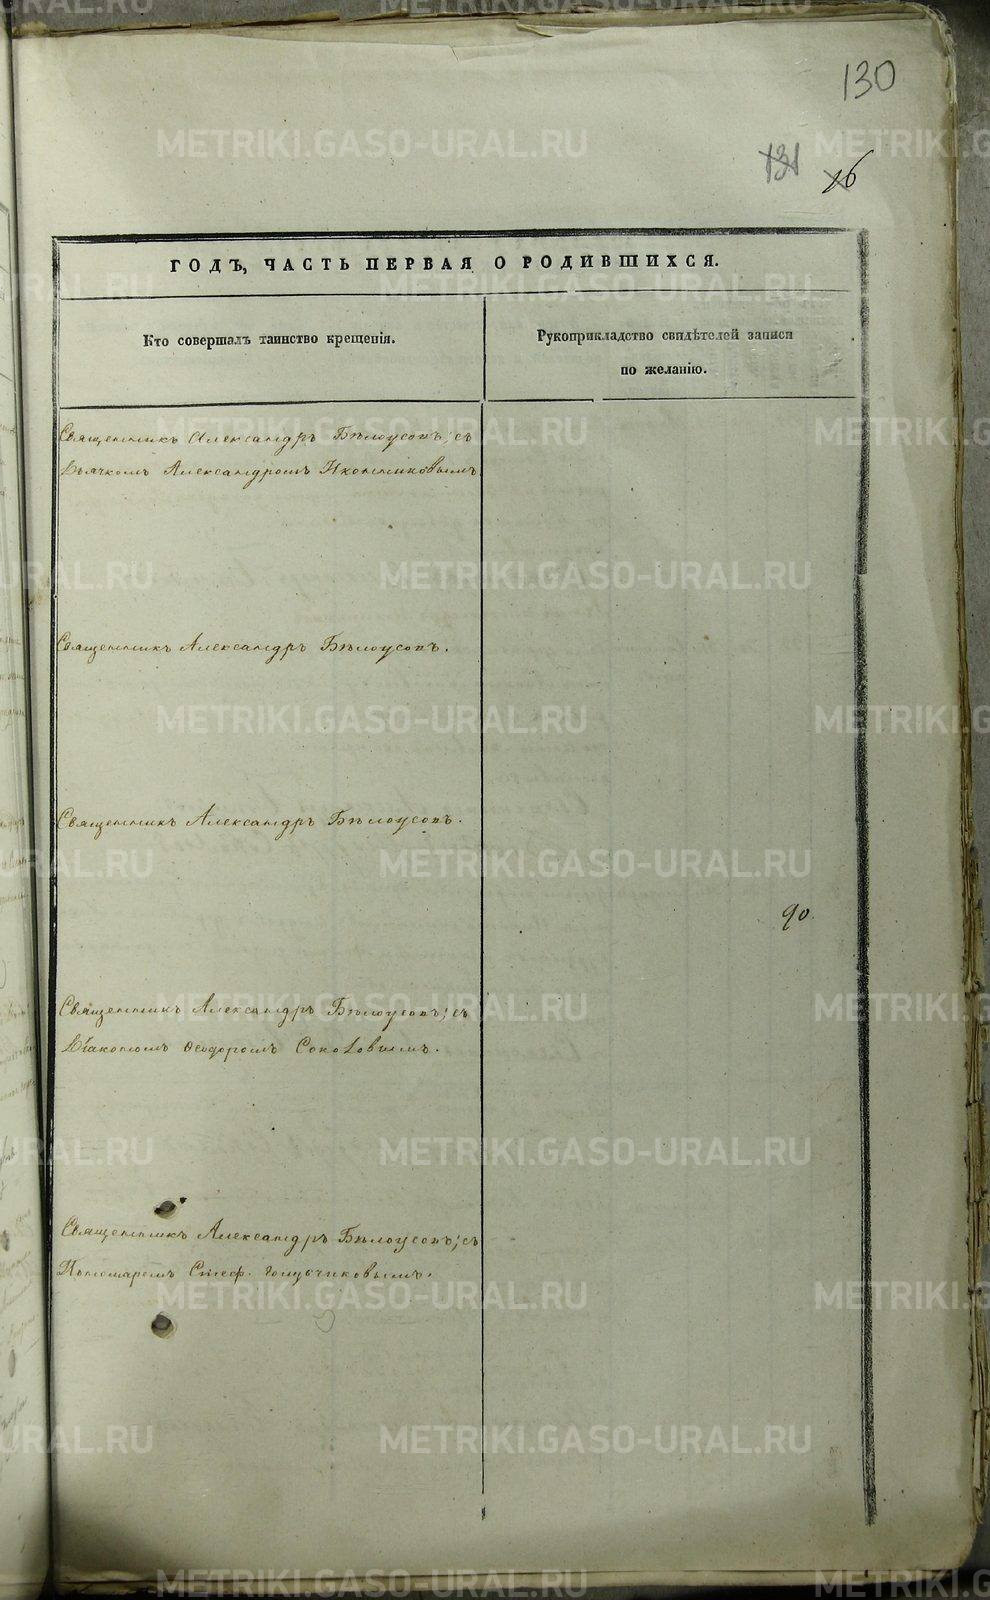 130
131 16
ГОДЪ, ЧАСТЬ ПЕРВАЯ О РОДИВШИХСЯ.
Кто совершалъ таинство крещенія.
Рукоприкладство свидѣтелей записи
по желанію.
Священникъ Александръ Бѣлоусовъ; съ
Дьячкомъ Александромъ Иконниковымъ
Священникъ Александръ Бѣлоусовъ.
Священникъ Александръ Бѣлоусовъ.
90.
Священникъ Александръ Бѣлоусовъ; съ
Діакономъ Ѳеодоромъ Соколовымъ.
Священникъ Александръ Бѣлоусовъ; съ
Пономаремъ Стеф.
METRIKI.GASO-URAL.RU